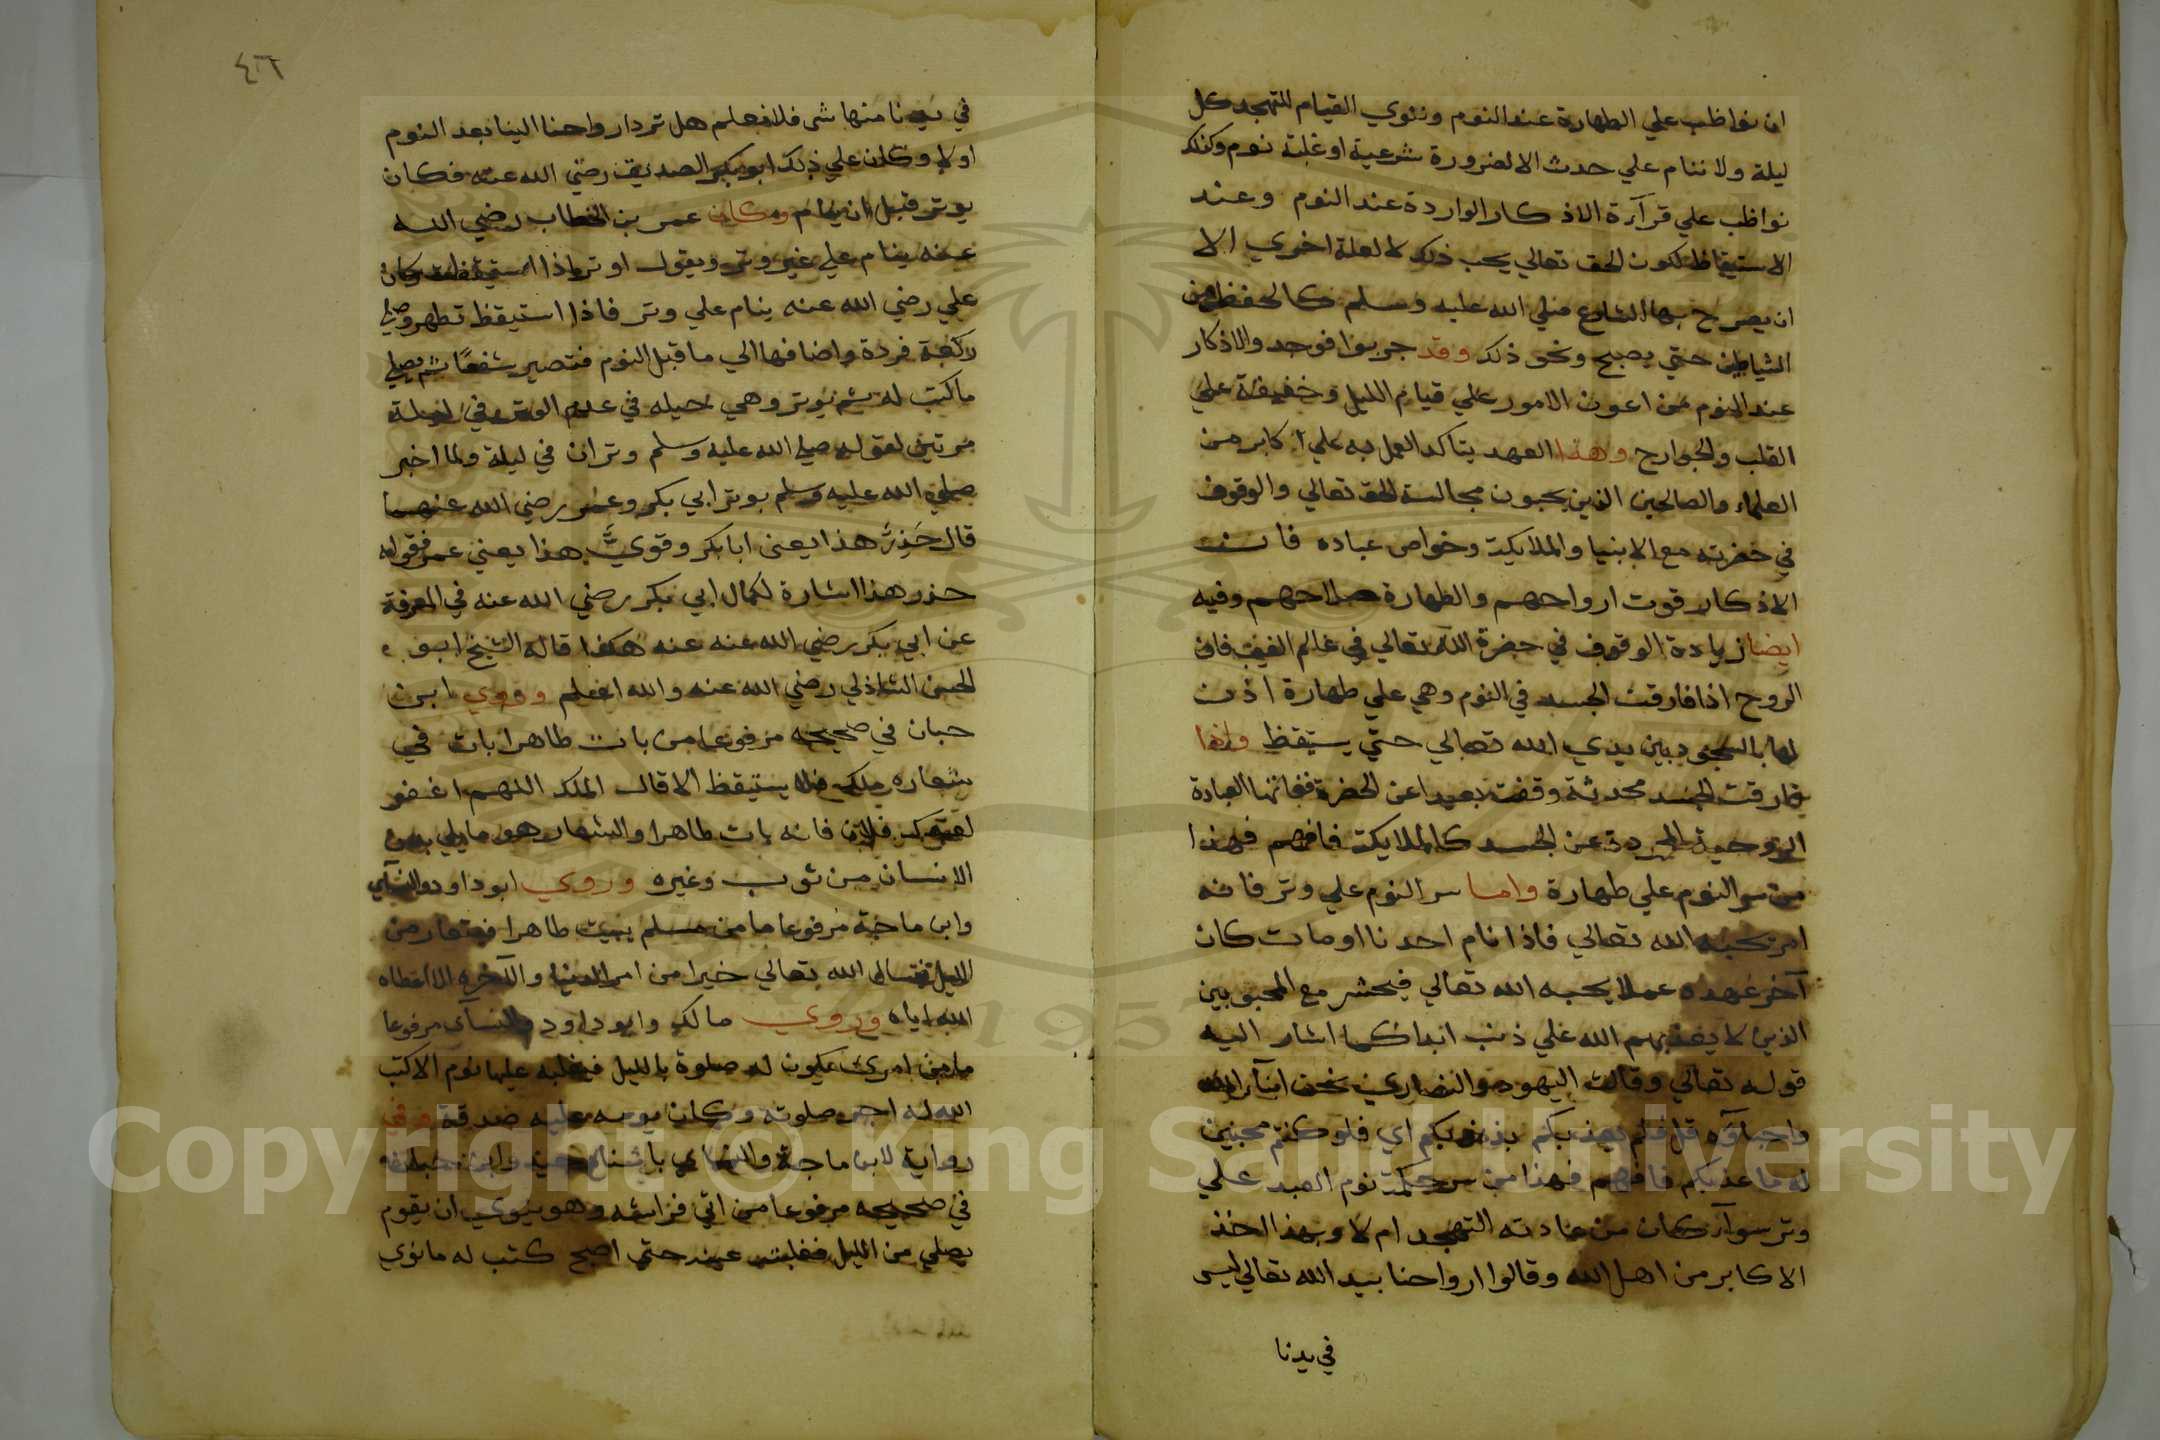 ان نواظب علي الطهارة عند النوم وننوي القيام للتهجد كل
ليلة ولا ننام علي حدث الا لضرورة شرعية او غلبة نوم وكذلك
نواظب علي قرآءة الاذكار الواردة عند النوم وعند
الاستيقاظ لكون الحق تعالي يحب ذلك لا لعلة اخري الا
ان يصرح بها الشارع صلي الله عليه وسلم كالحفظ من
الشياطين حتي يصبح ونحو ذلك وقد جربوا فوجدوا الاذكار
عند النوم من اعون الامور علي قيام الليل وخفيفة علي
القلب والجوارح وهذا العهد يتاكد العمل به علي اكابر من
العلماء والصالحين الذين يحبون مجالسة الحق تعالي والوقوف
في حضرته مع الانبيا والملايكة وخواص عباده فانت
الاذكار قوت ارواحهم والطهارة سلاحهم وفيه
ايضا زيادة الوقوف في حضرة الله تعالي في عالم الغيب فان
الروح اذا فارقت الجسد في النوم وهي علي طهارة اذن
لها بالسجود بين يدي الله تعالي حتي يستيقظ واذا
فارقت الجسد محدثة وقفت بعيدا عن الحضرة ففاتها العبادة
الروحية المجردة عن الجسد كالملايكة فافهم فهذا
من سر النوم علي طهارة واما سر النوم علي وتر فانه
امر يحبه الله تعالي فاذا نام احدنا او مات كان
آخر عهده عملا يحبه الله تعالي فيحشر مع المحبوبين
الذين لا يعذبهم الله علي ذنب ابدا كما اشار اليه
قوله تعالي وقالت اليهود والنصاري نحن ابنآء الله
واحباؤه قل فلم يعذبكم بذنوبكم اي فلو كنتم محبين
له ما عذبكم فافهم فهذا من سر حكمة نوم العبد علي
وتر سوآء كان من عادته التهجد ام لا وبهذا اخذ
الاكابر من اهل الله وقالوا ارواحنا بيد الله تعالي ليس
في يدنا
٤٦
في يدنا منها شي فلا نعلم هل ترد ارواحنا الينا بعد النوم
اولا وكان علي ذلك ابو بكر الصديق رضي الله عنه فكان
يوتر قبل ان ينام وكان عمر بن الخطاب رضي الله
عنه ينام علي غير وتر ويقول اوتر اذا استيقظت وكان
علي رضي الله عنه ينام علي وتر فاذا استيقظ تطهر وصلي
ركعة فردة واضافها الي ما قبل النوم فتصير شفعا ثم يصلي
ما كتب له ثم يوتر وهي حيله في عدم الوتر في ليلة
مرتين لقوله صلي الله عليه وسلم وتران في ليلة ولما اخبر
صلي الله عليه وسلم بوتر ابي بكر وعمر رضي الله عنهما
قال حذر هذا يعني ابابكر وقوي هذا يعني عمر فقوله
حذر هذا اشارة لكمال ابي بكر رضي الله عنه في المعرفة
عن ابي بكر رضي الله عنه عنه هكذا قاله الشيخ ابو
الحسن الشاذلي رضي الله عنه والله اعلم وروي ابن
حبان في صحيحه مرفوعا من بات طاهرا بات في
شعاره ملك فلا يستيقظ الا قال الملك اللهم اغفر
لعبدك فلان فانه بات طاهرا والشعار هو ما يلي بدن
الانسان من ثوب وغيره وروي ابو داود والنسآي
وابن ماجة مرفوعا ما من مسلم يبيت طاهرا فيتعار من
الليل فيسال الله تعالي خيرا من امر الدنيا والآخرة الا اعطاه
الله اياه وروي مالك وابو داود والنسآي مرفوعا
ما من امرئ يكون له صلوة بالليل فيغلبه عليها نوم الا كتب
الله له اجر صلوته وكان نومه عليه صدقة وفي
رواية لابن ماجة والنسآي باسناد جيد وابن حبان
في صحيحه مرفوعا من اتي فراشه وهو ينوي ان يقوم
يصلي من الليل فغلبته عينه حتي اصبح كتب له ما نوي
Copyright © King Saud University
1957